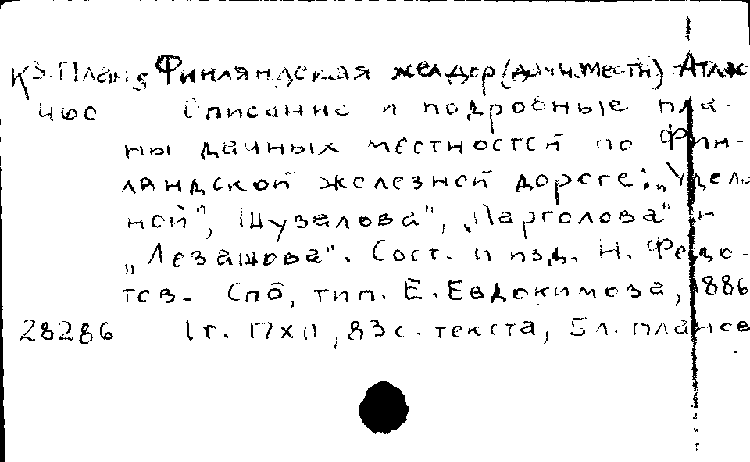 К3-План 5 Финляндская жел дор (дачн. местн) Атлас
460 Описание и подробные пла-
ны дачных местностей по Фин-
ляндской железной дороге: „Удель
ной", Шувалова", „Парголова" и
„Левашова". Сост. и изд. Н. Федо-
тов. Спб, тип. Е. Евдокимова, 1886
28286 1 т. 17х11, 83 с. текста, 5 л. планов